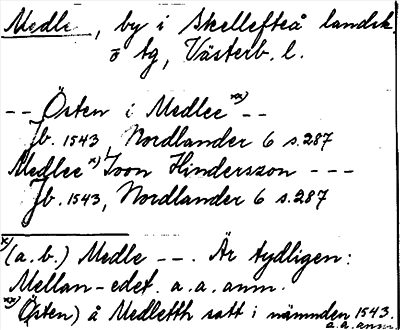 Medle, by i Skellefteå landsk.
o tg, Västerb. l.
-- Östen i Medlee xx) --
Jb. 1543, Nordlander 6 s.287
Medlee x) Joon Hindersson ---
Jb. 1543, Nordlander 6 s.287
x) (a.b.) Medle --. Är tydligen:
Mellan-edet. a.a. anm.
xx) Östen) å Medletth satt i nämnden 1543.
a.a. anm.